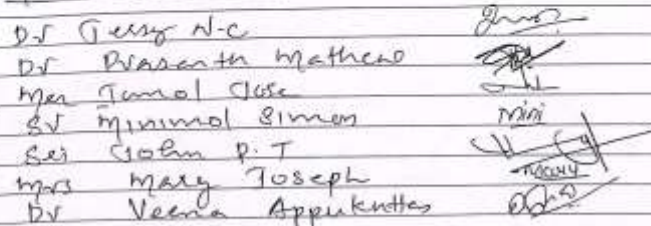 Dr Jessy N.C
Dr Prasanth Mathew
Mer Jomol Jose
Sr Minimol Simon Mini
Sri John P.T
Mrs Mary Joseph Mary
Dr Veena Appukuttan